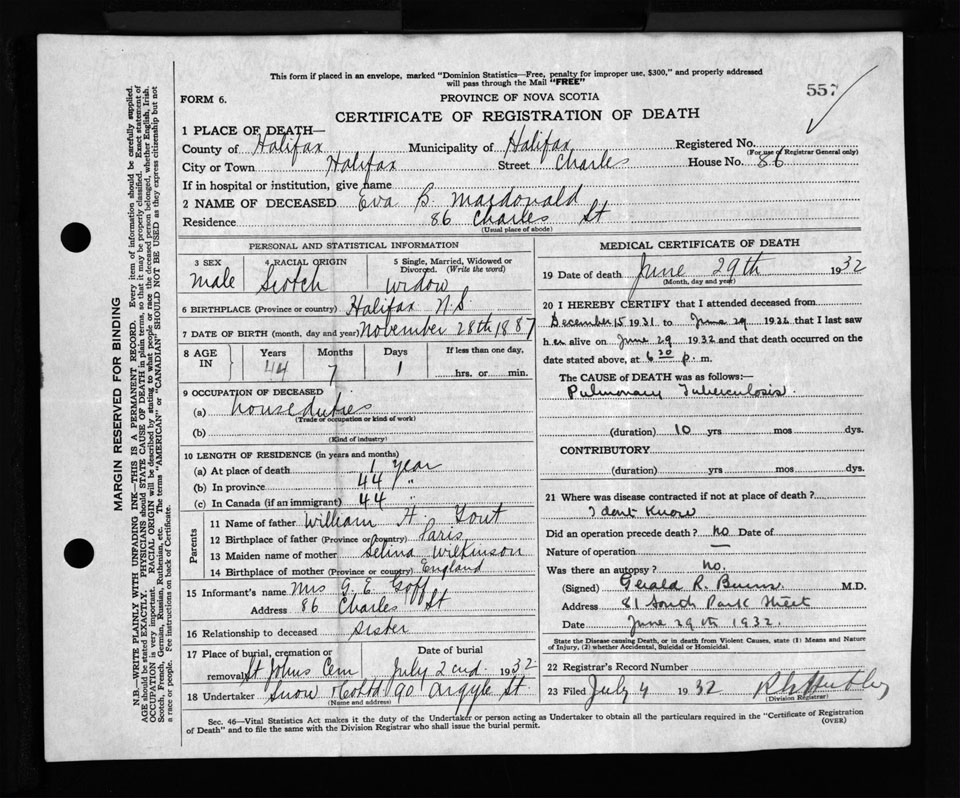 This form if placed in an envelope, marked "Dominion Statistics—Free, penalty for improper use, $300," and properly addressed
will pass through the Mail "FREE"
557
FORM 6.
PROVINCE OF NOVA SCOTIA
CERTIFICATE OF REGISTRATION OF DEATH
1 PLACE OF DEATH—
County of Halifax Municipality of Halifax Registered No.
(For use of Registrar General only)
City or Town Halifax Street Charles House No. 86
If in hospital or institution, give name
2 NAME OF DECEASED Eva B. Macdonald
Residence 86 Charles St
(Usual place of abode)
PERSONAL AND STATISTICAL INFORMATION
3 SEX
male
4 RACIAL ORIGIN
Scotch
5 Single, Married, Widowed or
Divorced. (Write the word)
widow
6 BIRTHPLACE (Province or country) Halifax N.S.
7 DATE OF BIRTH (month, day and year) November 28th 1887
8 AGE IN
Years Months Days If less than one day,
44 7 1 hrs. or min.
9 OCCUPATION OF DECEASED
(a) house duties
(Trade or occupation or kind of work)
(b)
(Kind of industry)
10 LENGTH OF RESIDENCE (in years and months)
(a) At place of death 1 year
(b) In province 44 "
(c) In Canada (if an immigrant) 44 "
Parents
11 Name of father William H.
12 Birthplace of father (Province or country) Paris
13 Maiden name of mother Selina Wilkinson
14 Birthplace of mother (Province or country) England
15 Informant's name Mrs G. E. Goff
Address 86 Charles St
16 Relationship to deceased sister
17 Place of burial, cremation or Date of burial
removal St Johns Cem July 2nd. 1932
18 Undertaker Snow & Co Ltd 90 Argyle St
(Name and address)
MEDICAL CERTIFICATE OF DEATH
19 Date of death June 29th 1932
(Month, day and year)
20 I HEREBY CERTIFY that I attended deceased from
December 15 1931 to June 29 1932 that I last saw
her alive on June 29 1932 and that death occurred on the
date stated above, at 6 30 p. m.
The CAUSE OF DEATH was as follows:—
Pulmonary Tuberculosis.
(duration) 10 yrs mos dys.
CONTRIBUTORY
(duration) yrs mos dys.
21 Where was disease contracted if not at place of death?
I dont know
Did an operation precede death? no Date of
Nature of operation —
Was there an autopsy? no.
(Signed) Gerald R. Burns. M.D.
Address 81 South Park Street
Date June 29th 1932.
State the Disease causing Death, or in death from Violent Causes, state (1) Means and Nature
of Injury, (2) whether Accidental, Suicidal or Homicidal.
22 Registrar's Record Number
23 Filed July 4 1932
(Division Registrar)
Sec. 46—Vital Statistics Act makes it the duty of the Undertaker or person acting as Undertaker to obtain all the particulars required in the "Certificate of Registration
of Death" and to file the same with the Division Registrar who shall issue the burial permit.
(OVER)
MARGIN RESERVED FOR BINDING
N.B.—WRITE PLAINLY WITH UNFADING INK—THIS IS A PERMANENT RECORD. Every item of information should be carefully supplied.
AGE should be stated EXACTLY. PHYSICIANS should STATE CAUSE OF DEATH in plain terms, so that it may be properly classified. Exact statement of
OCCUPATION is very important. RACIAL ORIGIN will be described by stating to what people or race the deceased person belonged, whether English, Irish,
Scotch, French, German, Russian, Ruthenian, etc. The terms "AMERICAN" or "CANADIAN" SHOULD NOT BE USED as they express citizenship but not
a race or people. See instructions on back of Certificate.